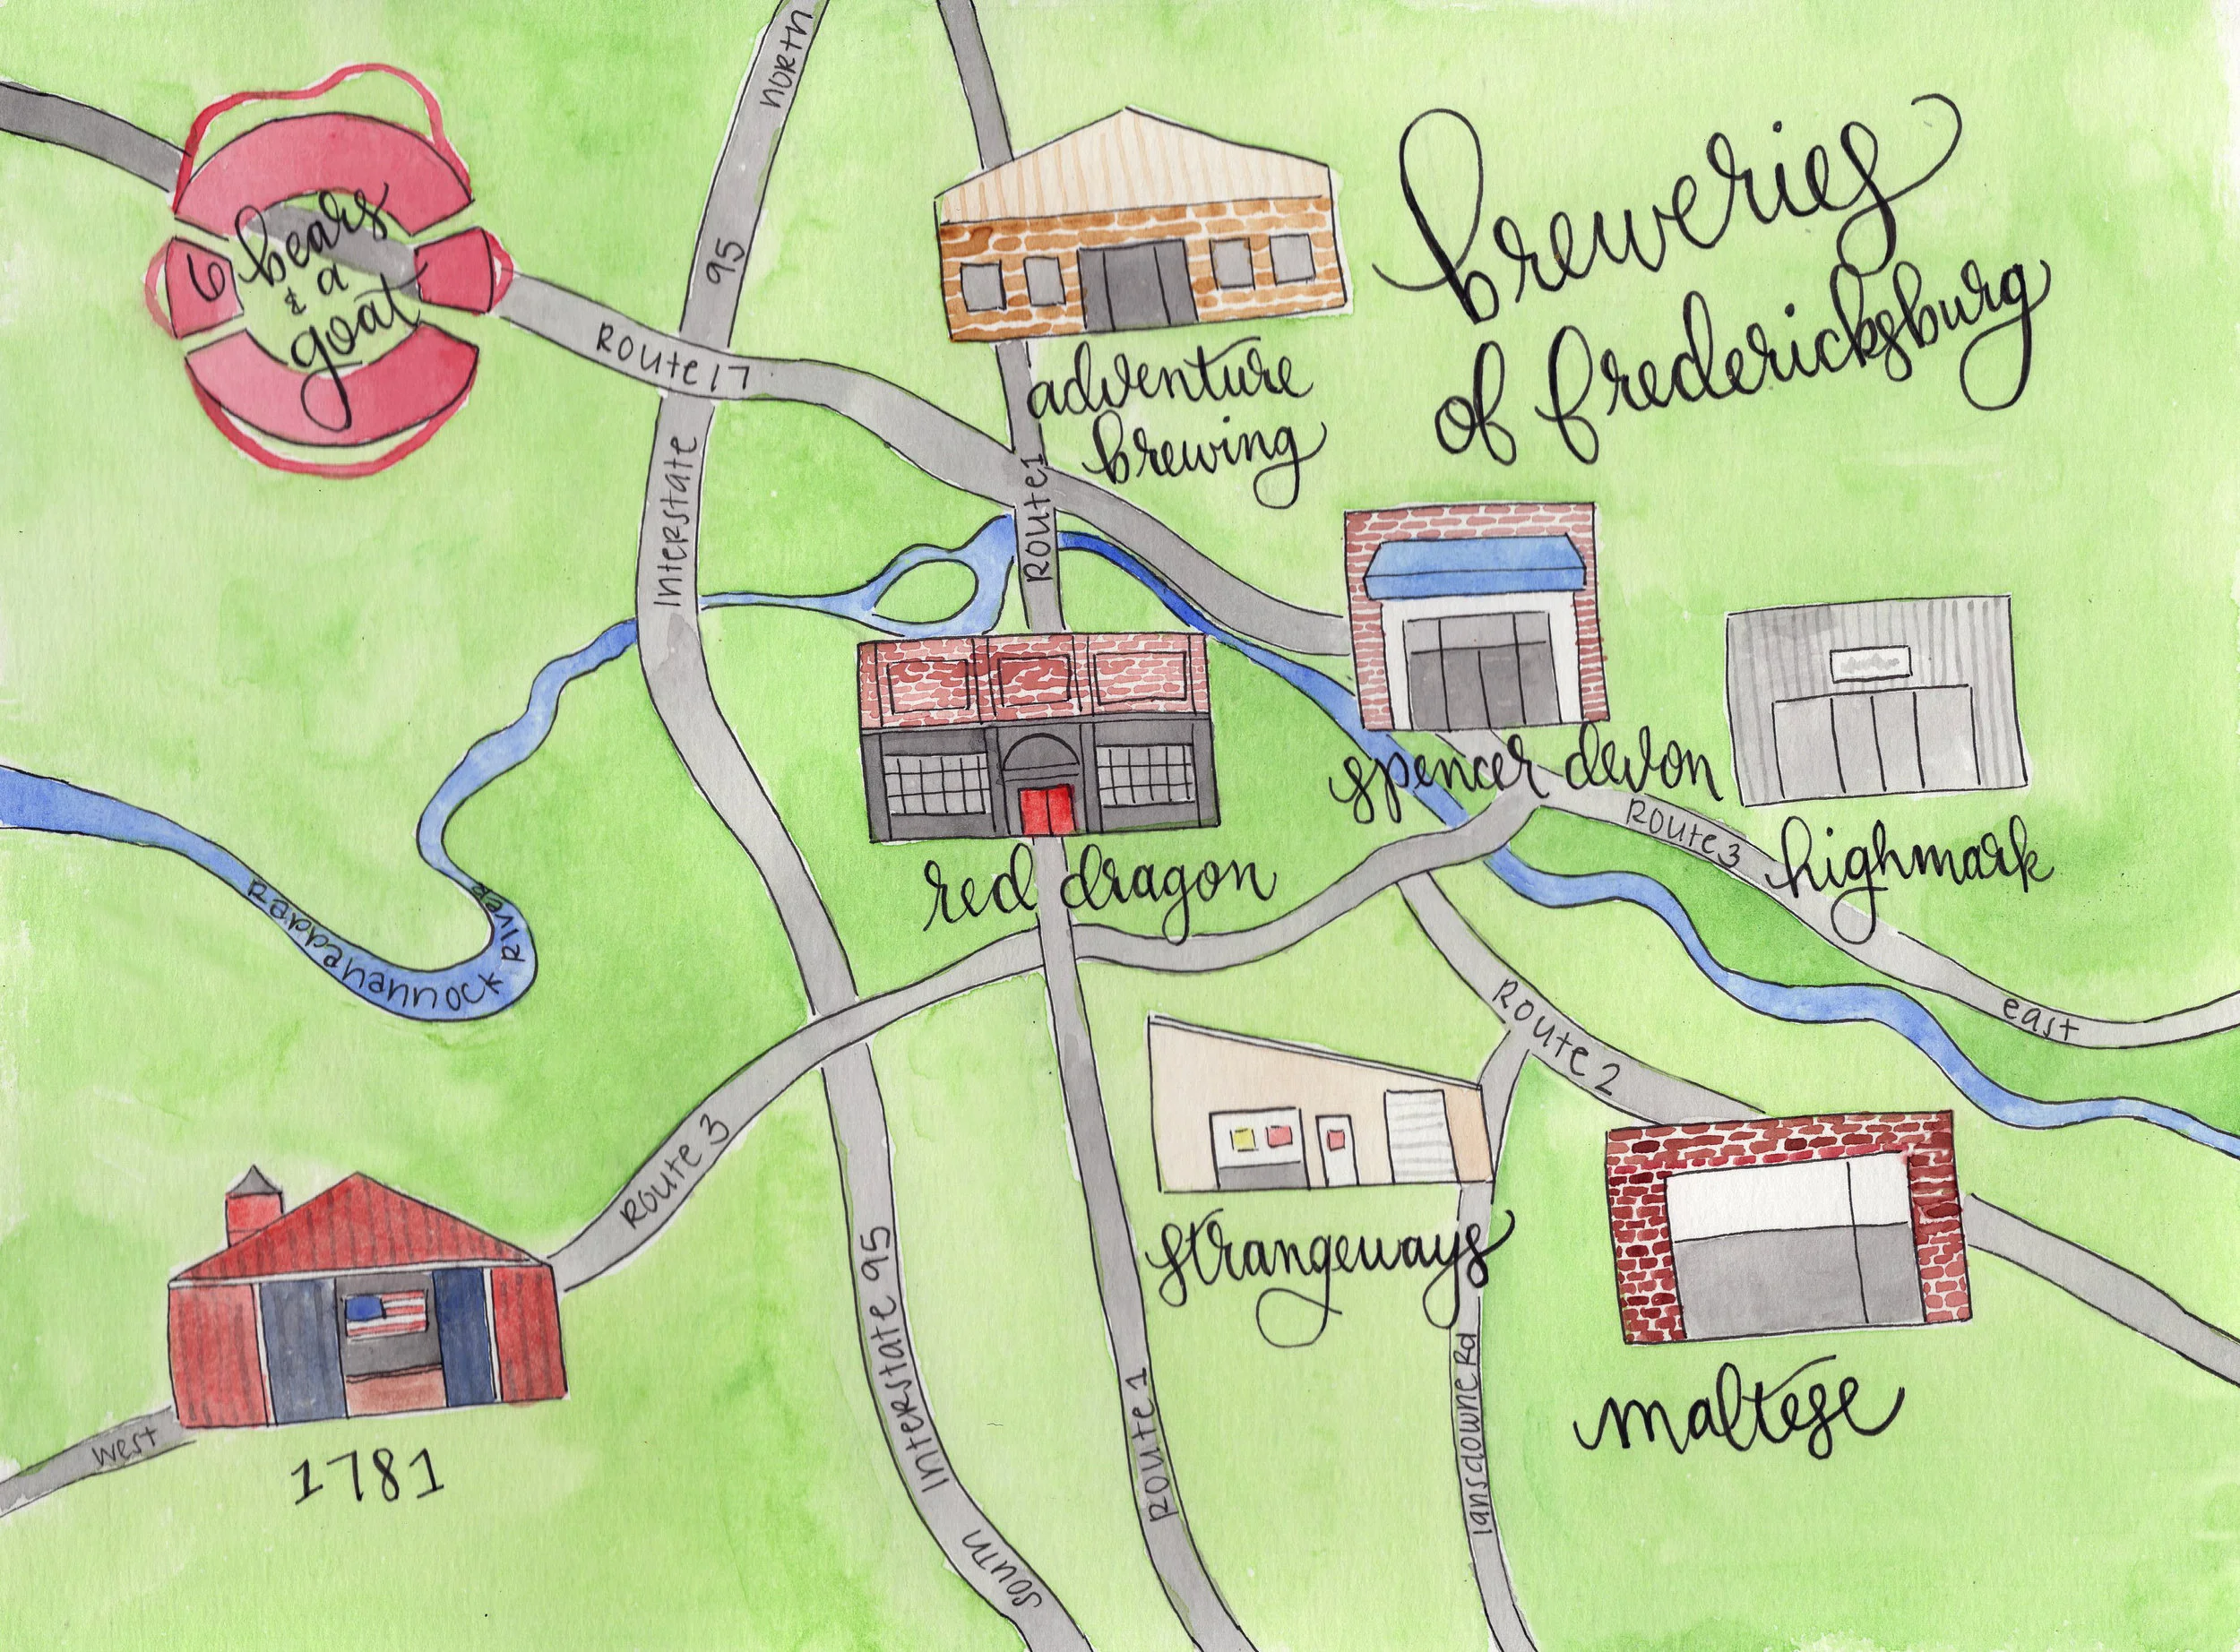 breweries
of fredericksburg
north
95
6 bears
& a
goat
Route 17
adventure
brewing
Interstate
Route 1
spencer devon
Route 3
highmark
red dragon
Rappahannock River
east
Route 2
Route 3
strangeways
Interstate 95
Route 1
lansdowne Rd
maltese
west
1781
south